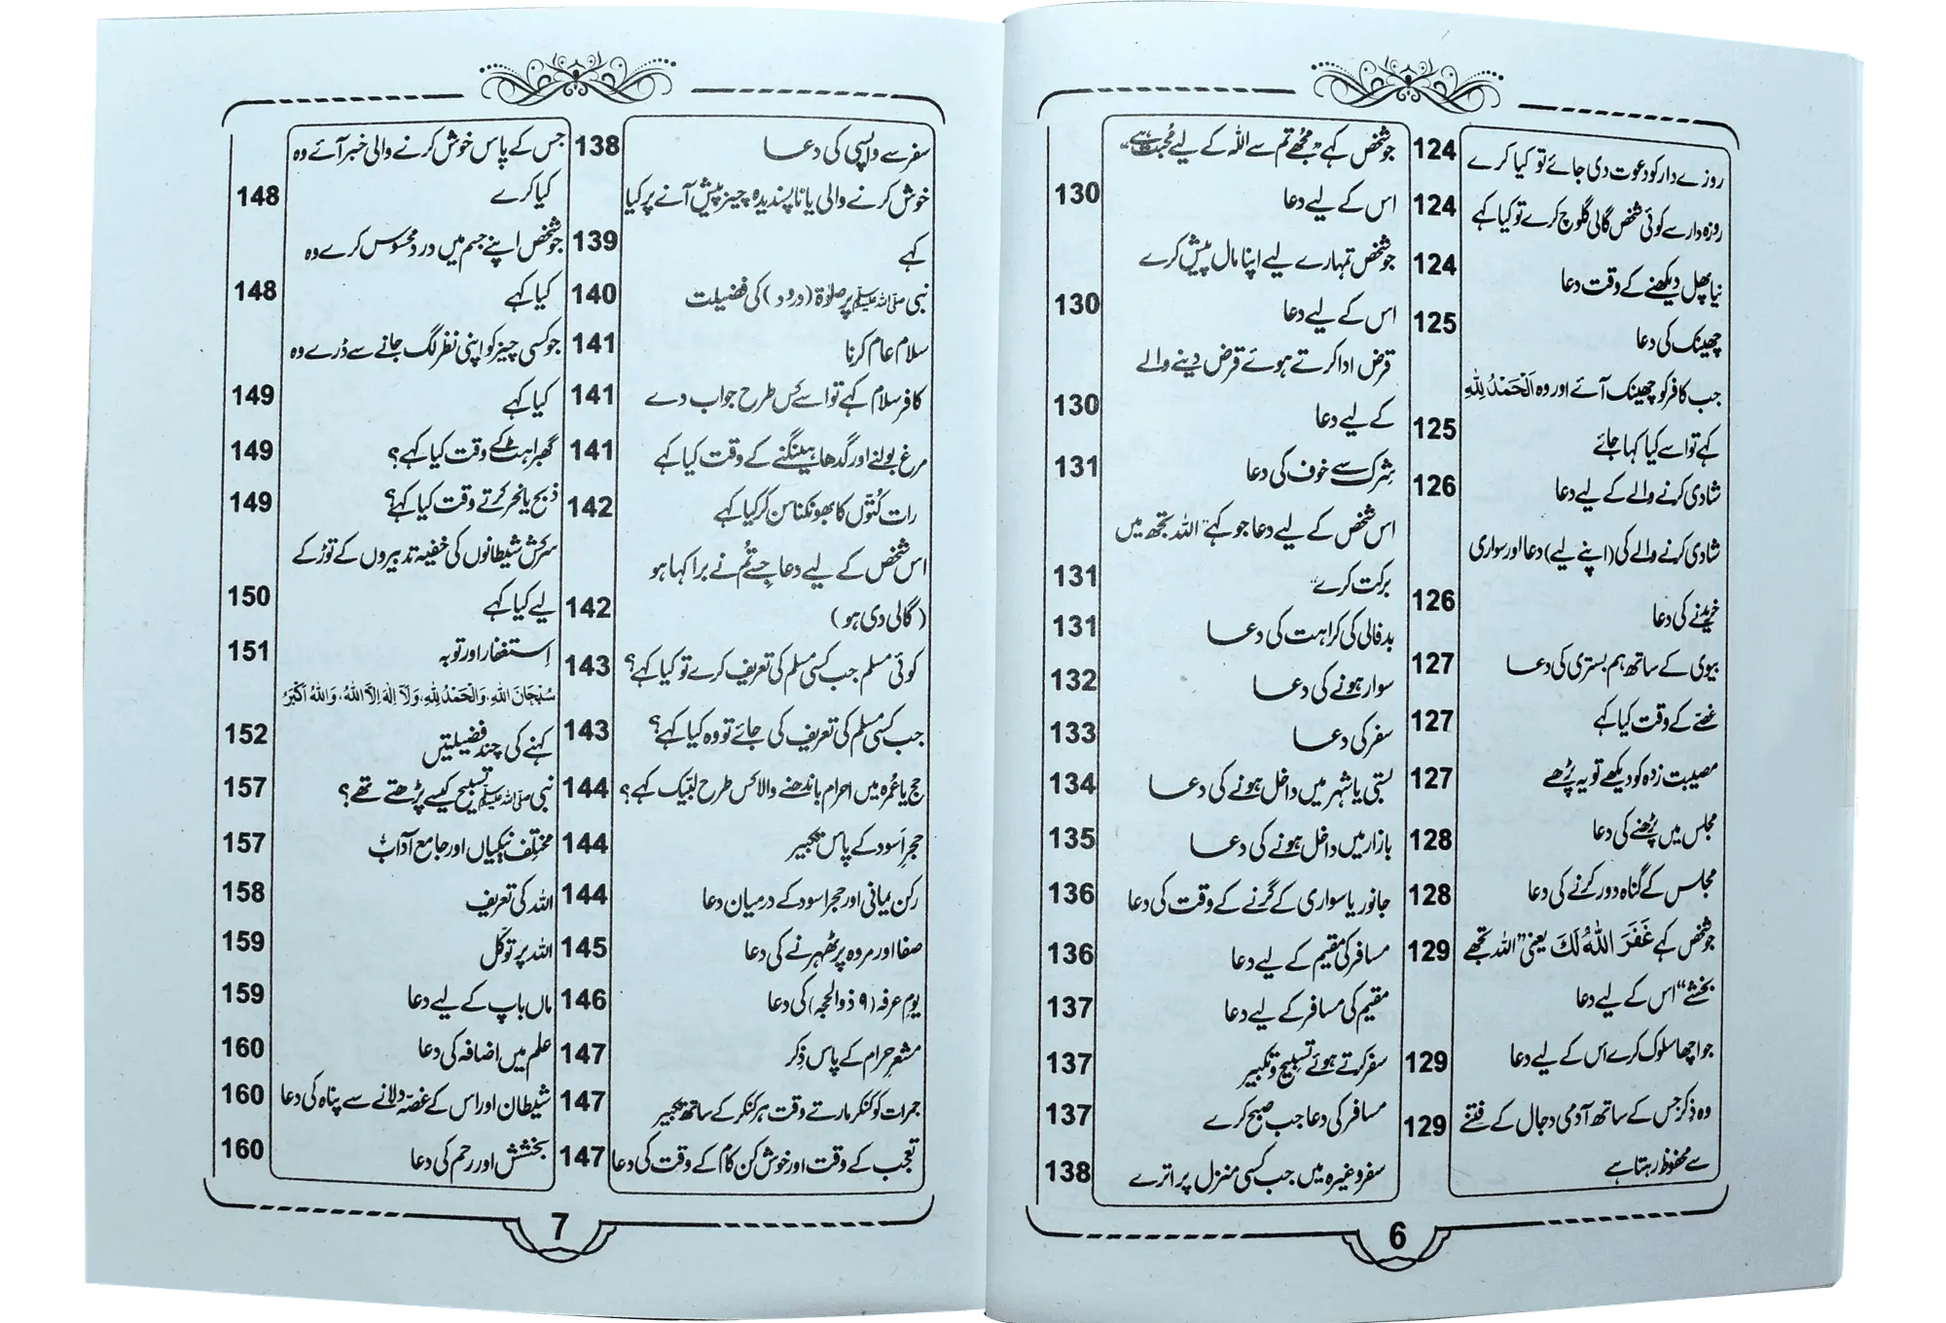 روزے دار کو دعوت دی جائے تو کیا کرے 124
روزہ دار سے کوئی شخص گالی گلوچ کرے تو کیا کہے 124
نیا پھل دیکھنے کے وقت دعا 124
چھینک کی دعا 125
جب کافر کو چھینک آئے اور وہ اَلْحَمْدُ لِلّٰہِ
کہے تو اسے کیا کہا جائے 125
شادی کرنے والے کے لیے دعا 126
شادی کرنے والے کی (اپنے لیے) دعا اور سواری
خریدنے کی دعا 126
بیوی کے ساتھ ہم بستری کی دعا 127
غصے کے وقت کیا کہے 127
مصیبت زدہ کو دیکھے تو یہ پڑھے 127
مجلس میں پڑھنے کی دعا 128
مجلس کے گناہ دور کرنے کی دعا 128
جو شخص کہے غَفَرَ اللّٰهُ لَكَ یعنی ”اللہ تجھے 129
بخشے“ اس کے لیے دعا
جو اچھا سلوک کرے اس کے لیے دعا 129
وہ ذکر جس کے ساتھ آدمی دجال کے فتنے 129
سے محفوظ رہتا ہے
جو شخص کہے ”مجھے تم سے اللہ کے لیے محبت ہے“
اس کے لیے دعا 130
جو شخص تمہارے لیے اپنا مال پیش کرے
اس کے لیے دعا 130
قرض ادا کرتے ہوئے قرض دینے والے
کے لیے دعا 130
شرک سے خوف کی دعا 131
اس شخص کے لیے دعا جو کہے ”اللہ تجھ میں
برکت کرے“ 131
بدفالی کی کراہت کی دعا 131
سوار ہونے کی دعا 132
سفر کی دعا 133
بستی یا شہر میں داخل ہونے کی دعا 134
بازار میں داخل ہونے کی دعا 135
جانور یا سواری کے گرنے کے وقت کی دعا 136
مسافر کی مقیم کے لیے دعا 136
مقیم کی مسافر کے لیے دعا 137
سفر کرتے ہوئے تسبیح و تکبیر 137
مسافر کی دعا جب صبح کرے 137
سفر وغیرہ میں جب کسی منزل پر اترے 138
6
سفر سے واپسی کی دعا 138
خوش کرنے والی یا ناپسندیدہ چیز پیش آنے پر کیا
کہے 139
نبی ﷺ پر صلوٰۃ (درود) کی فضیلت 140
سلام عام کرنا 141
کافر سلام کہے تو اسے کس طرح جواب دے 141
مرغ بولنے اور گدھا ہینگنے کے وقت کیا کہے 141
رات کُتّوں کا بھونکنا سن کر کیا کہے 142
اس شخص کے لیے دعا جسے تُم نے برا کہا ہو
(گالی دی ہو) 142
کوئی مسلم جب کسی مسلم کی تعریف کرے تو کیا کہے؟ 143
جب کسی مسلم کی تعریف کی جائے تو وہ کیا کہے؟ 143
حج یا عُمرہ میں احرام باندھنے والا کس طرح لَبَّیک کہے؟ 144
حجرِ اَسود کے پاس تکبیر 144
رکن یمانی اور حجر اسود کے درمیان دعا 144
صفا اور مروہ پر ٹھہرنے کی دعا 145
یومِ عرفہ (۹ ذوالحجہ) کی دعا 146
مشعرِ حرام کے پاس ذِکر 147
جمرات کو کنکر مارتے وقت ہر کنکر کے ساتھ تکبیر 147
تعجب کے وقت اور خوش کن کام کے وقت کی دعا 147
جس کے پاس خوش کرنے والی خبر آئے وہ
کیا کرے 148
جو شخص اپنے جسم میں درد محسوس کرے وہ
کیا کہے 148
جو کسی چیز کو اپنی نظر لگ جانے سے ڈرے وہ
کیا کہے 149
گھبراہٹ کے وقت کیا کہے؟ 149
ذبح یا نحر کرتے وقت کیا کہے؟ 149
سرکش شیطانوں کی خفیہ تدبیروں کے توڑ کے
لیے کیا کہے 150
اِستغفار اور توبہ 151
سُبْحَانَ اللّٰهِ، وَالْحَمْدُ لِلّٰهِ، وَلَآ اِلٰهَ اِلَّا اللّٰهُ، وَاللّٰهُ اَكْبَرُ
کہنے کی چند فضیلتیں 152
نبی ﷺ تسبیح کیسے پڑھتے تھے؟ 157
مختلف نیکیاں اور جامع آداب 157
اللہ کی تعریف 158
اللہ پر توکّل 159
ماں باپ کے لیے دعا 159
علم میں اضافہ کی دعا 160
شیطان اور اس کے غصّہ دلانے سے پناہ کی دعا 160
بخشش اور رحم کی دعا 160
7